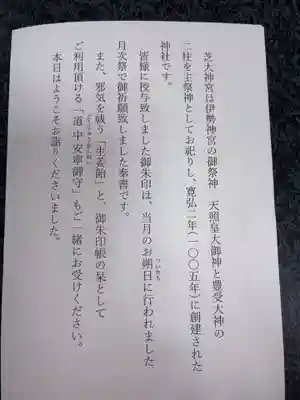 芝大神宮は伊勢神宮の御祭神　天照皇大御神と豊受大神の
二柱を主祭神としてお祀りし、寛弘二年(一〇〇五年)に創建された
神社です。
皆様に授与致しました御朱印は、当月のお朔日に行われました
ついたち
月次祭で御祈願致しました奉書です。
また、邪気を祓う「生姜飴」と、御朱印帳の栞として
ご利用頂ける「道中安寧御守」もご一緒にお受けください。
本日はようこそお詣りくださいました。